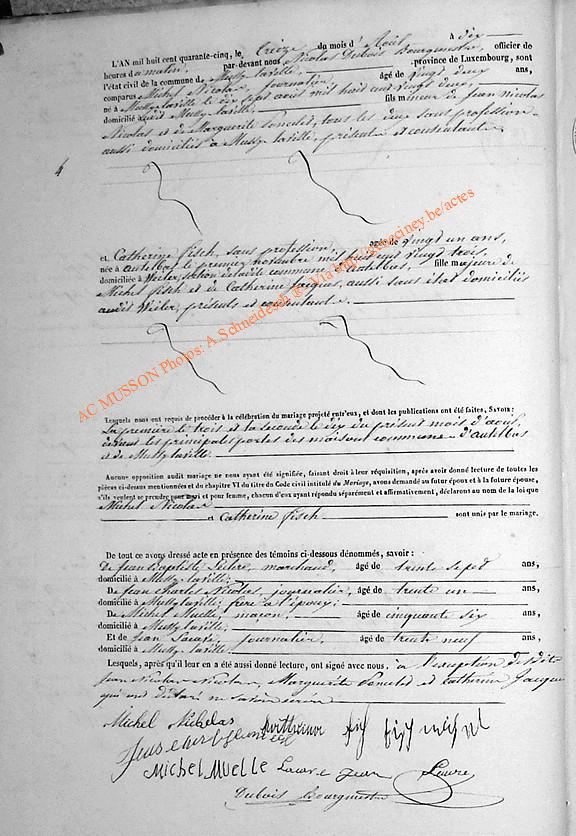 L'AN mil huit cent quarante-cinq, le treize du mois d'Août à dix
heures du matin, par-devant nous Nicolas Dubois Bourgmestre, officier de
l'état civil de la commune de Mussy laville, province de Luxembourg, sont
comparus Michel Nicolas, journalier, âgé de vingt deux ans,
né à Mussy laville le dix sept août mil huit cent vingt deux,
domicilié audit Mussy laville fils mineur de Jean Nicolas
Nicolas et de Marguerite Poncelet, tous les deux sans profession
aussi domiciliés à Mussy laville, présents et consentants
4
et Catherine fisch, sans profession, agée de vingt un ans,
née à autelbas le premier novembre mil huit cent vingt trois,
domiciliée à Weiler, section de ladite commune d'autelbas, fille majeure de
Michel fisch et de Catherine Jacques, aussi sans état domiciliés
audit Weiler, présents et consentants.
AC MUSSON Photos: A.Schneidesch © Ma http://geneciney.be/actes
Lesquels nous ont requis de procéder à la célébration du mariage projeté entr'eux, et dont les publications ont été faites, SAVOIR:
La première le trois et la seconde le dix du présent mois d'août,
devant les principales portes des maisons commune d'autelbas
et de Mussy laville.
Aucune opposition audit mariage ne nous ayant été signifiée, faisant droit à leur réquisition, après avoir donné lecture de toutes les
pièces ci-dessus mentionnées et du chapitre VI du titre du Code civil intitulé du Mariage, avons demandé au futur époux et à la future épouse,
s'ils veulent se prendre pour mari et pour femme, chacun d'eux ayant répondu séparément et affirmativement, déclarons au nom de la loi que
Michel Nicolas
et Catherine fisch sont unis par le mariage.
De tout ce avons dressé acte en présence des témoins ci-dessous dénommés, savoir :
De Jean Baptiste marchand, âgé de trente sept ans,
domicilié à Mussy laville;
De Jean Charles Nicolas, journalier, âgé de trente un ans,
domicilié à Mussy laville; frère à l'époux;
De Michel Muelle, maçon, âgé de cinquante six ans,
domicilié à Mussy laville;
Et de Jean journalier, âgé de trente neuf ans,
domicilié à Mussy laville
Lesquels, après qu'il leur en a été aussi donné lecture, ont signé avec nous, à l'exception desdits
Jean Nicolas Nicolas, Marguerite Poncelet et Catherine Jacques
qui ont déclaré ne savoir écrire
Michel Nicholas
fisch
Michel Muelle Jean
Dubois Bourgmestre